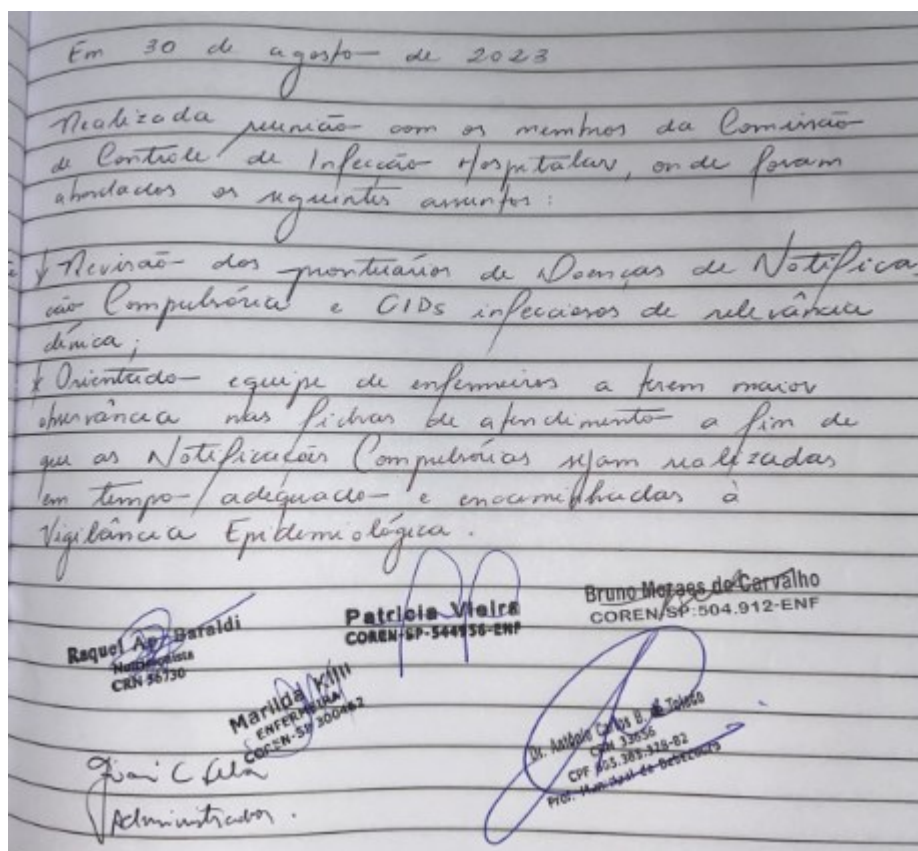 Em 30 de agosto de 2023
Realizada reunião com os membros da Comissão
de Controle de Infecção Hospitalar, onde foram
abordados os seguintes assuntos:
Revisão dos prontuários de Doenças de Notifica
ção Compulsória e CIDs infecciosos de relevância
clínica;
Orientado equipe de enfermeiros a terem maior
observância nas fichas de atendimento a fim de
que as Notificações Compulsórias sejam realizadas
em tempo adequado e encaminhadas à
Vigilância Epidemiológica.
Raquel Ap. Baraldi
Nutricionista
CRN 56730
Patricia Vieira
COREN-SP-544956-ENF
Bruno Moraes de Carvalho
COREN/SP:504.912-ENF
Marilda
ENFERMEIRA
COREN-SP 300462
Dr. Antônio Carlos B. de Toledo
CRM 33656
CPF
Pref. Municipal de Bebedouro
Administrador.